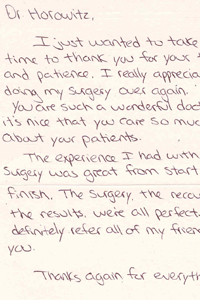 Dr. Horowitz,
I just wanted to take
time to thank you for your
and patience. I really apprecia
doing my surgery over again.
you are such a wonderful doc
it's nice that you care so muc
about your patients.
The experience I had with
surgery was great from start
finish. The surgery, the reco
the results, we're all perfect.
definitely refer all of my frien
you.
Thanks again for everyth